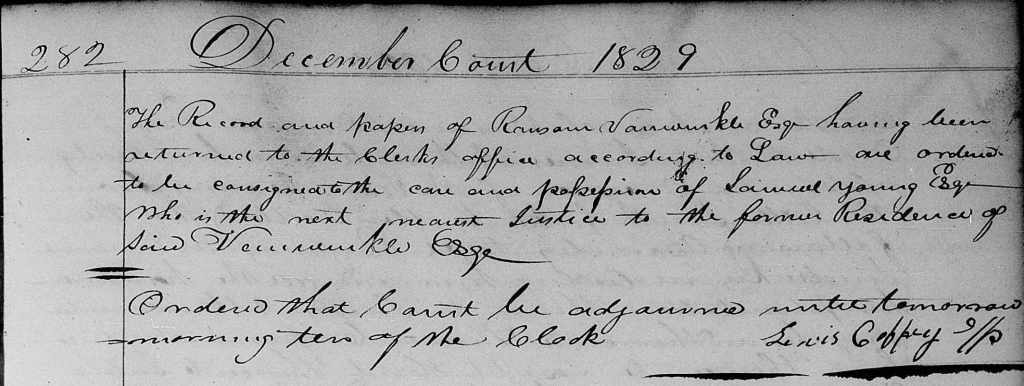 282 December Court 1829
The Record and papers of Ransom Vanwinkle Esqr having been
returned to the Clerks office according to Law are ordered
to be consigned to the care and possession of Samuel Young Esqr
Who is the next nearest Justice to the former Residence of
Said Vanwinkle Esqr
Ordered that Court be adjourned until tomorrow
morning ten of the Clock Lewis Coffey